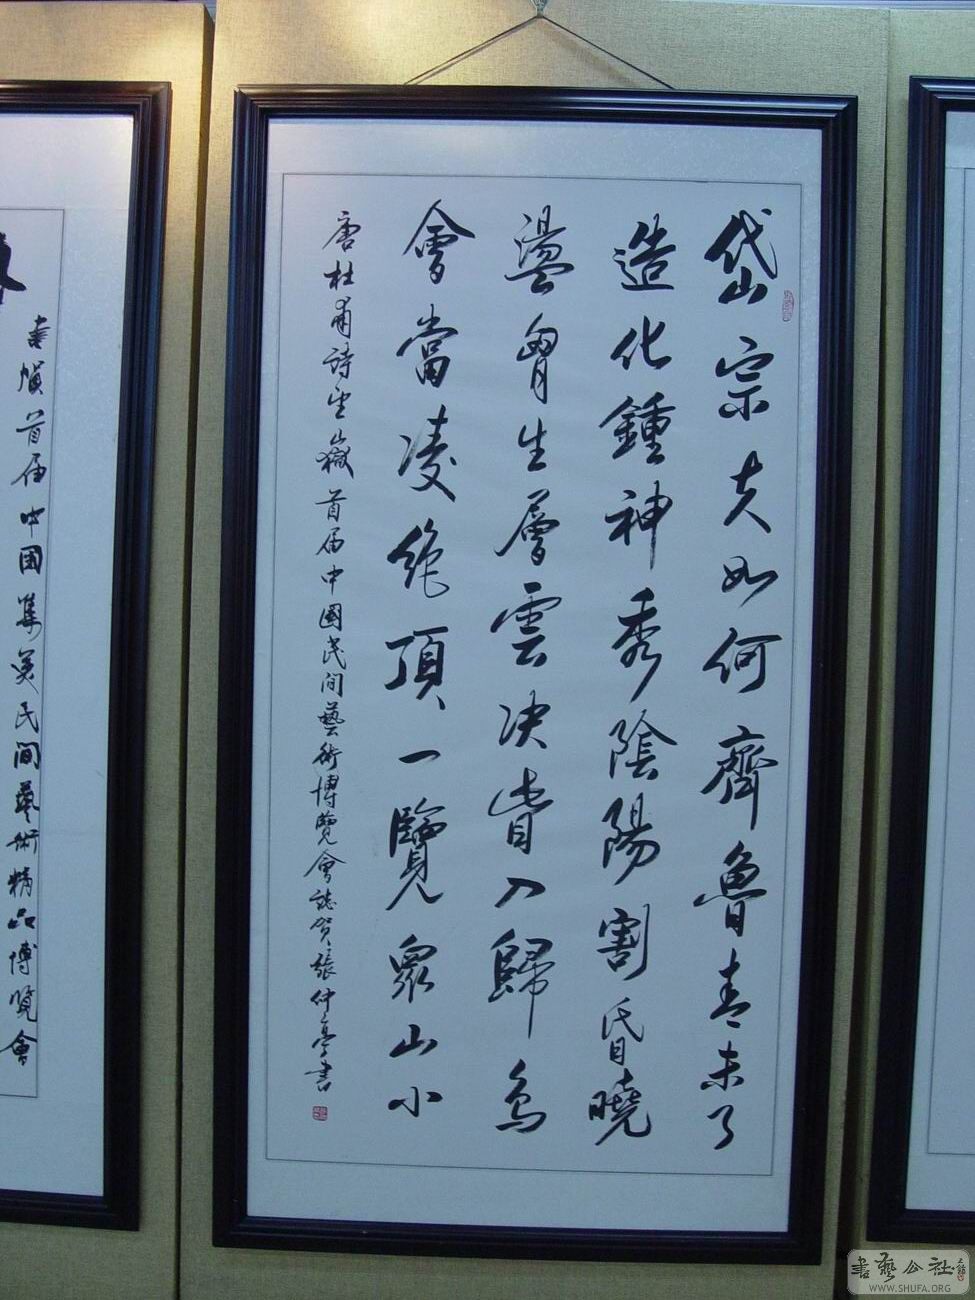 岱宗夫如何齊魯青未了
造化鍾神秀陰陽割昏曉
盪胷生層雲決眥入歸鳥
會當凌絶頂一覽衆山小
唐杜甫詩望嶽首届中國民间藝術博覽會誌贺張仲亭書
書幀首届中國集美民间藝術精品博覽會
書藝公社
WWW.SHUFA.ORG